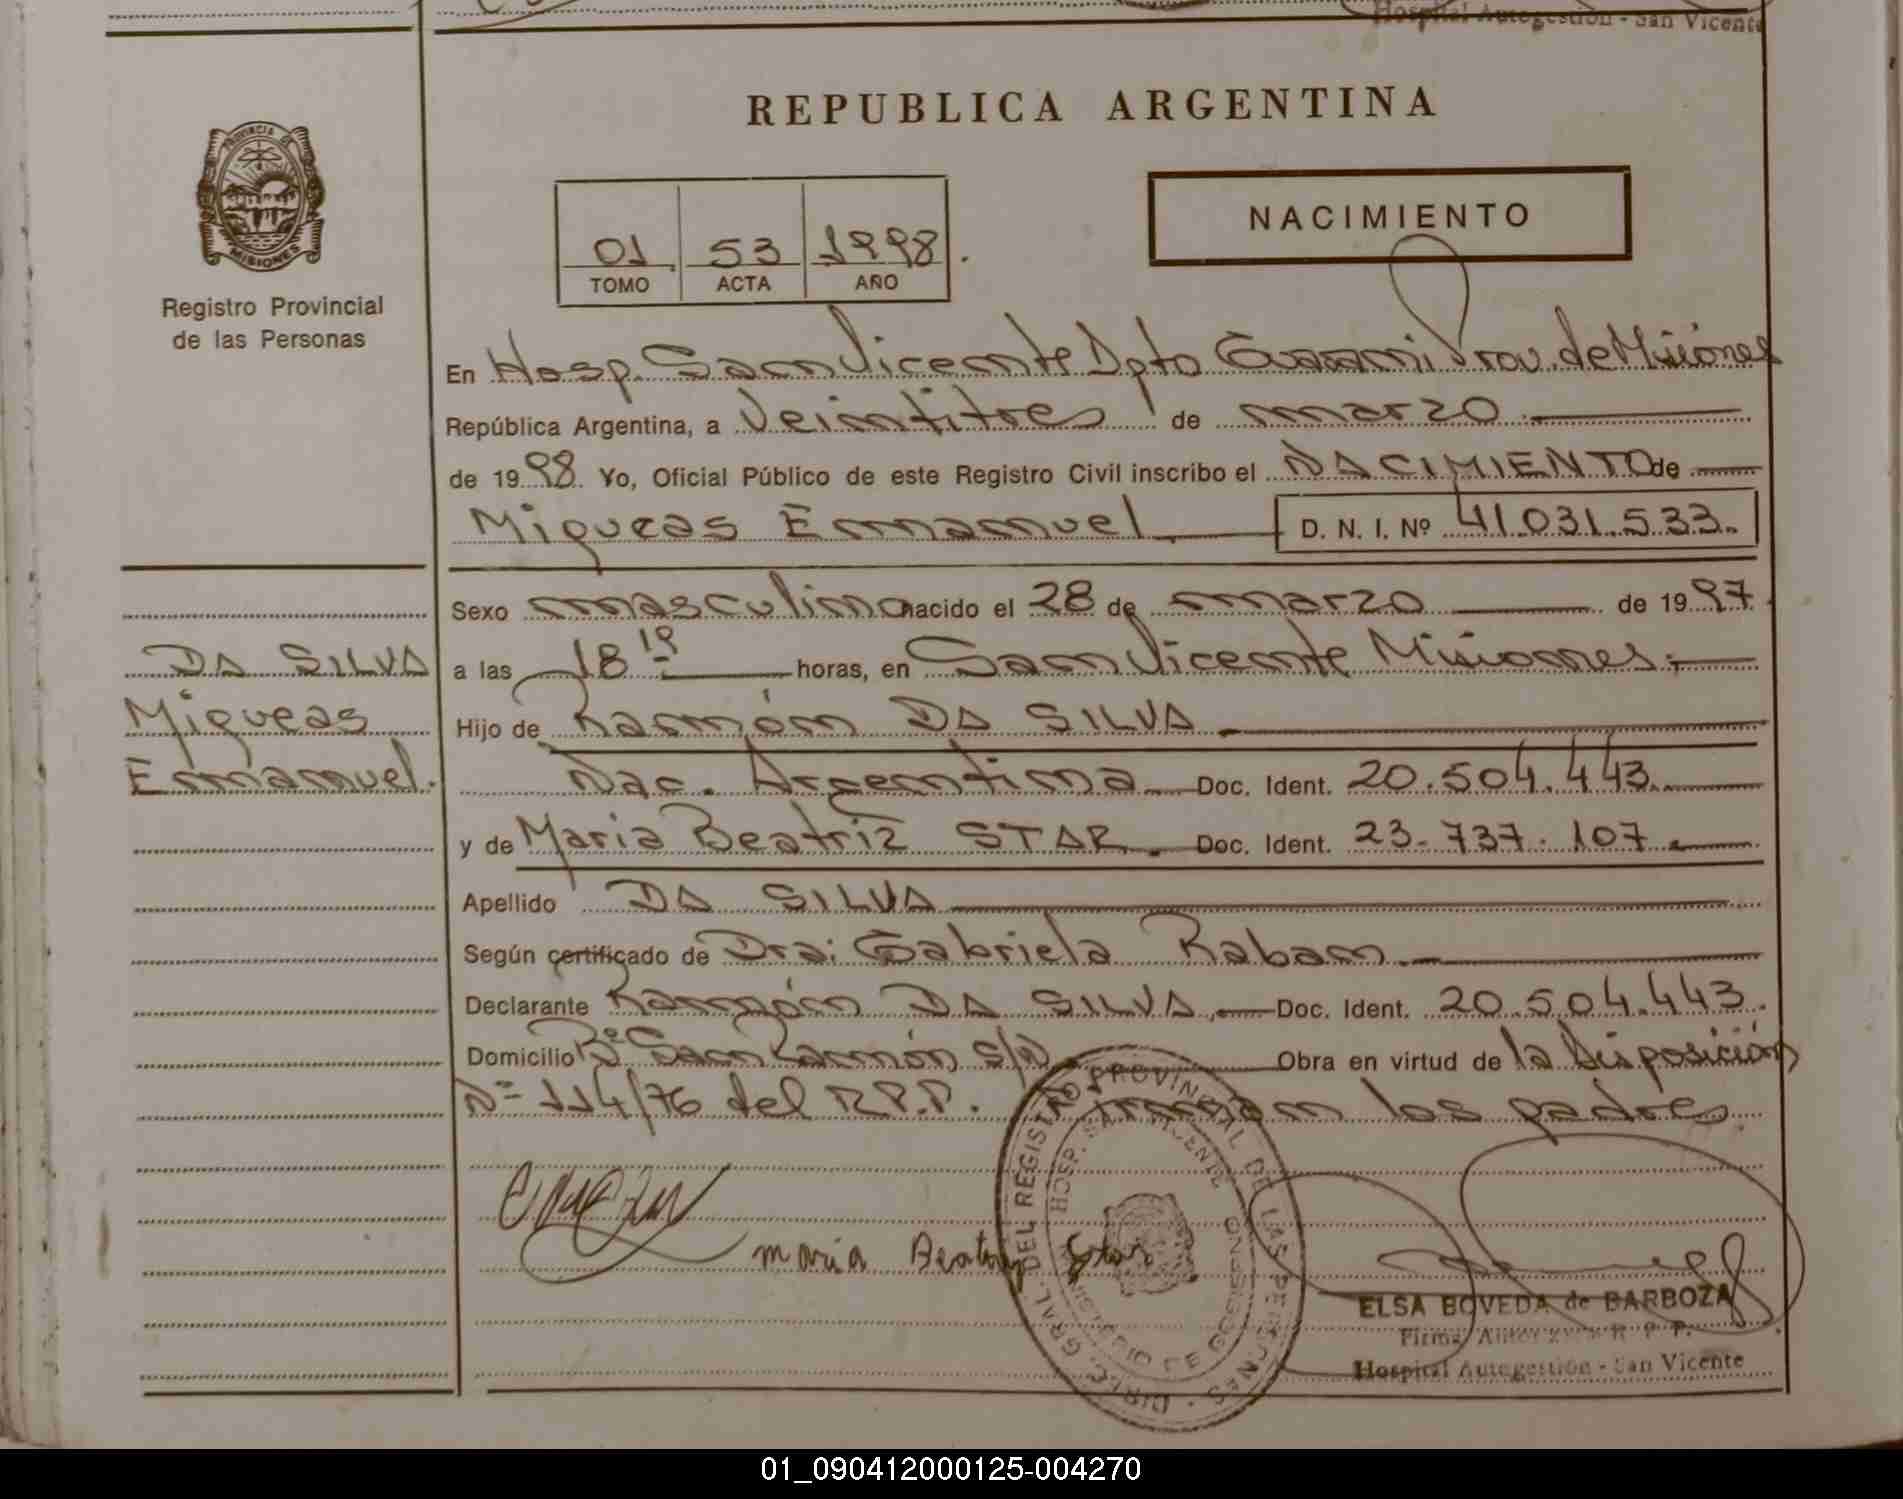 Hospital Autogestión - San Vicente
REPUBLICA ARGENTINA
PROVINCIA DE
MISIONES
Registro Provincial
de las Personas
01 53 1998
TOMO ACTA AÑO
NACIMIENTO
En Hosp. San Vicente Dpto Guarani Prov. de Misiones
República Argentina, a Veintitres de marzo
de 1998. Yo, Oficial Público de este Registro Civil inscribo el NACIMIENTO de
Miqueas Emmanuel D. N. I. Nº 41.031.533.
Sexo masculino nacido el 28 de marzo de 1997
DA SILVA
Miqueas
Emmanuel.
a las 18 19 horas, en San Vicente Misiones.
Hijo de Ramón DA SILVA
Nac. Argentina Doc. Ident. 20.504.443
y de Maria Beatriz STAR. Doc. Ident. 23.737.107
Apellido DA SILVA
Según certificado de Dra: Gabriela Raban.
Declarante Ramón DA SILVA, Doc. Ident. 20.504.443.
Domicilio Bº San Ramón s/n Obra en virtud de la Disposición
Nº 114/76 del R.P.P. Firman los padres.
maria Beatriz Star
DIREC. GRAL. DEL REGISTRO PROVINCIAL DE LAS PERSONAS
HOSP. SAN VICENTE
MINISTERIO DE GOBIERNO
ELSA BOVEDA de BARBOZA
Firma R. P. P.
Hospital Autogestión - San Vicente
01_090412000125-004270